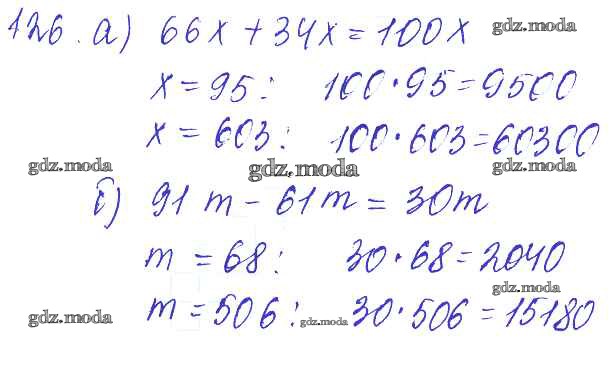 126. а) 66x + 34x = 100x gdz.moda
x = 95: 100·95 = 9500
x = 603: 100·603 = 60300
gdz.moda gdz.moda gdz.moda
б) 91m - 61m = 30m
m = 68: 30·68 = 2040
gdz.moda
m = 506: 30·506 = 15180
gdz.moda gdz.moda